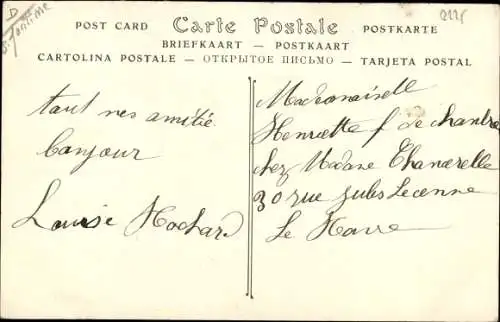 POST CARD Carte Postale POSTKARTE
BRIEFKAART — POSTKAART
CARTOLINA POSTALE — ОТКРЫТОЕ ПИСЬМО — TARJETA POSTAL
tout nes amitié
Bonjour
Louise Hochard
Mademoiselle
Henriette f de chambre
chez Madame Thancrelle
30 rue Jules Lecenne
Le Havre